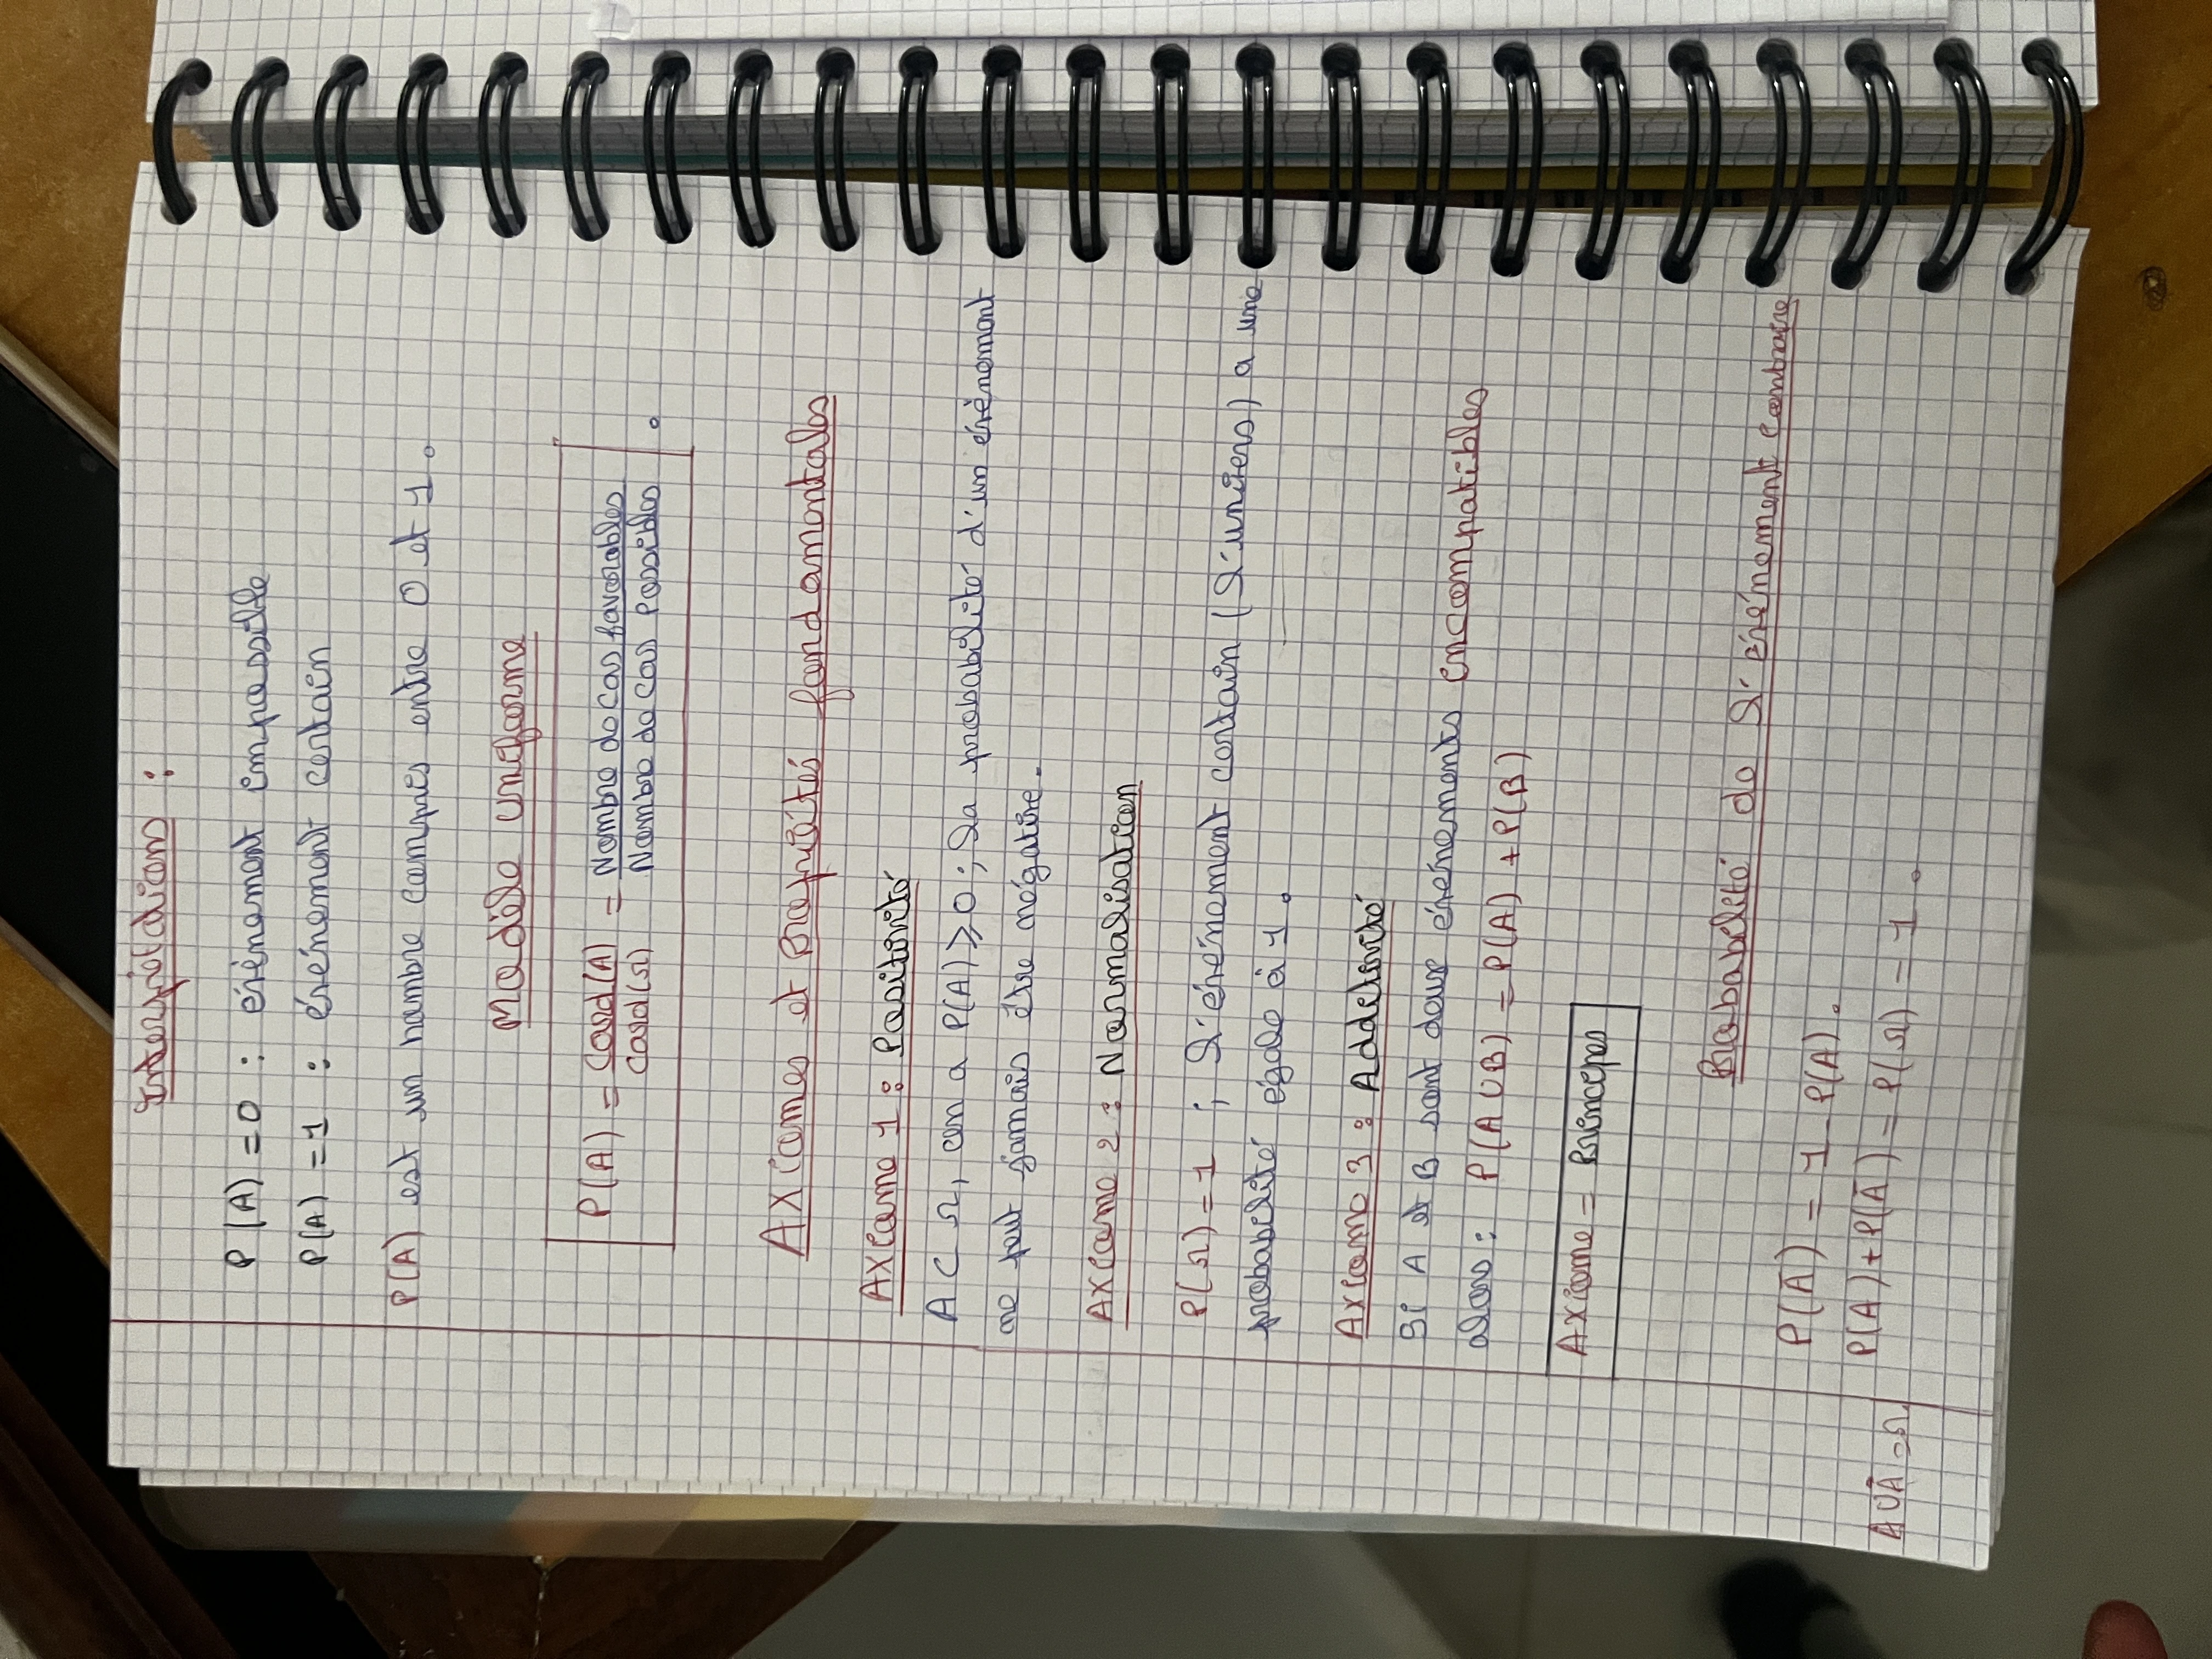 Interprétations :
P(A) = 0 : évènement impossible
P(A) = 1 : évènement certain
P(A) est un nombre compris entre 0 et 1.
Modèle uniforme
P(A) = Card(A) / Card(Ω) = Nombre de cas favorables / Nombre de cas possibles.
Axiomes et Propriétés fondamentales
Axiome 1 : Positivité
A ⊂ Ω, on a P(A) ⩾ 0 ; la probabilité d'un évènement
ne peut jamais être négative.
Axiome 2 : Normalisation
P(Ω) = 1 ; l'évènement certain (l'univers) a une
probabilité égale à 1.
Axiome 3 : Additivité
Si A et B sont deux évènements incompatibles
alors : P(A∪B) = P(A) + P(B)
Axiome = Principes
Probabilité de l'évènement contraire
P(Ā) = 1 - P(A).
P(A) + P(Ā) = P(Ω) = 1.
A∪Ā = Ω